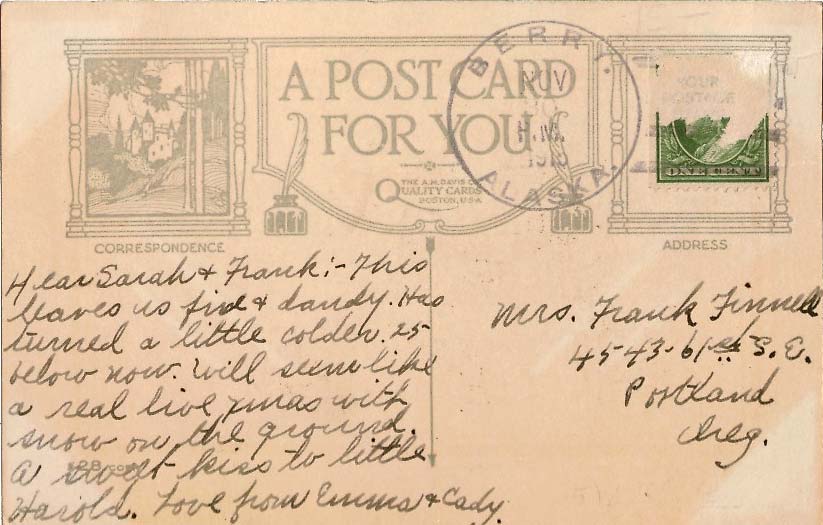 BERRY.
NOV
P.M.
191
ALASKA.
A POST CARD
FOR YOU
THE A.M. DAVIS CO.
QUALITY CARDS
BOSTON, USA
YOUR
POSTAGE
ONE CENT
CORRESPONDENCE
ADDRESS
Dear Sarah & Frank:- This
leaves us fine & dandy. Has
turned a little colder. 25
below now. Will seem like
a real live xmas with
snow on the ground.
A sweet kiss to little
Harold. Love from Emma & Cady
Mrs. Frank Finnell
4543-61st S.E.
Portland
Oreg.